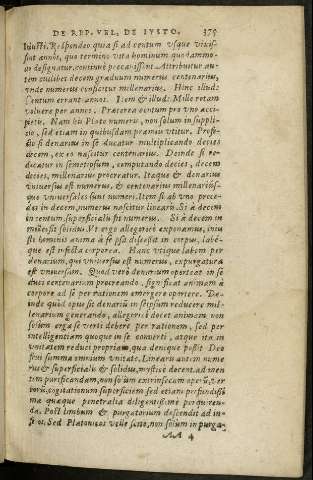 DE REP. VEL, DE IVSTO. 375
iniusti. Respondeo: quia si ad centum vsque vixis-
sent annos, quo termino vita hominum quodammo-
do designatur, continuè peccauissent. Attribuitur au-
tem cuilibet decem graduum numerus centenarius,
vnde numerus conficitur millenarius. Hinc illud:
Centum errant annos. Item & illud: Mille rotam
voluere per annos. Praeterea centum pro vno acci-
piet. Nam hic Plato numero, non solum in suppli-
cio, sed etiam in quibusdam praemiis vtitur. Profe-
cto si denarius in se ducatur multiplicando decies
decem, ex eo nascitur centenarius. Deinde si re-
ducatur in semetipsum, computando decies, decem
decies, millenarius procreatur. Itaque & denarius
vniuersus est numerus, & centenarius millenarius-
que vniuersales sunt numeri. Item si ab vno proce-
das in decem, numerus nascitur linearis. Si à decem
in centum, superficialis fit numerus. Si à decem in
mille, fit solidus. Vt ergo allegoricè exponamus, iniu-
sti hominis anima à se ipsa discessit in corpus, labé-
que est infecta corporea. Hanc vtique labem per
denarium, qui vniuersus est numerus, expurgatura
est vniuersam. Quod verò denarium oporteat in se
duci centenarium procreando, significat animam à
corpore ad se per rationem emergere oportere. De-
inde quòd opus sit denariū in seipsum reducere mil-
lenarium generando, allegoricè docet animam non
solùm erga se verti debere per rationem, sed per
intelligentiam quoque in se conuerti, atque ita in
vnitatem reduci propriam, qua denique possit Deo
frui summa omnium vnitate. Linearis autem nume-
rus & superficialis & solidus, mysticè docent, ad men-
tem purificandam, non solùm extrinsecam operū, ver-
borū, cogitationum superficiem, sed etiam profundissi-
ma quaeque penetralia diligentissimè perquiren-
da. Post limbum & purgatorium descendit ad in-
feros. Sed Platonicos velle scito, non solùm in purga-
AA 4